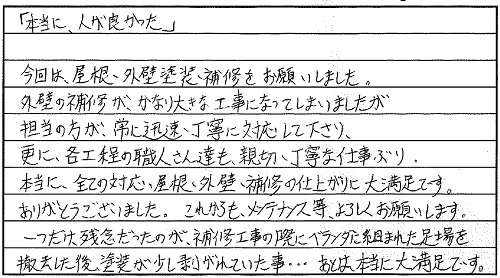 「本当に、人が良かった。」
今回は、屋根、外壁塗装、補修をお願いしました。
外壁の補修が、かなり大きな工事になってしまいましたが
担当の方が、常に迅速、丁寧に対応して下さり、
更に、各工程の職人さん達も、親切、丁寧な仕事ぶり、
本当に、全ての対応、屋根、外壁、補修の仕上がりに大満足です。
ありがとうございました。これからも、メンテナンス等、よろしくお願いします。
一つだけ残念だったのが、補修工事の際にベランダに組まれた足場を
撤去した後、塗装が少し剥がれていた事… あとは、本当に大満足です。